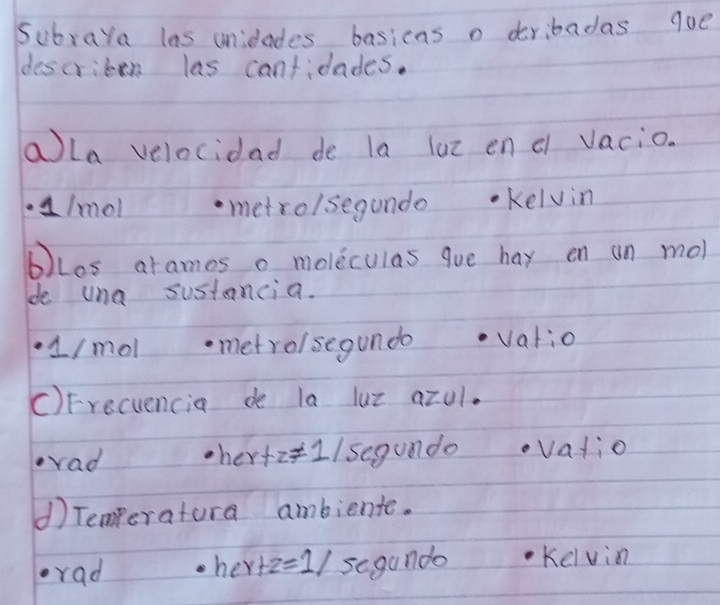 Subraya las unidades basicas o deribadas que
describen las cantidades.
a) La velocidad de la luz en el vacio.
• 1/mol • metro/segundo • Kelvin
b) Los atamos o moléculas que hay en un mol
de una sustancia.
• 1/mol • metro/segundo • vatio
c) Frecuencia de la luz azul.
• rad • hertz≠1/segundo • vatio
d) Temperatura ambiente.
• rad • hertz=1/segundo • Kelvin